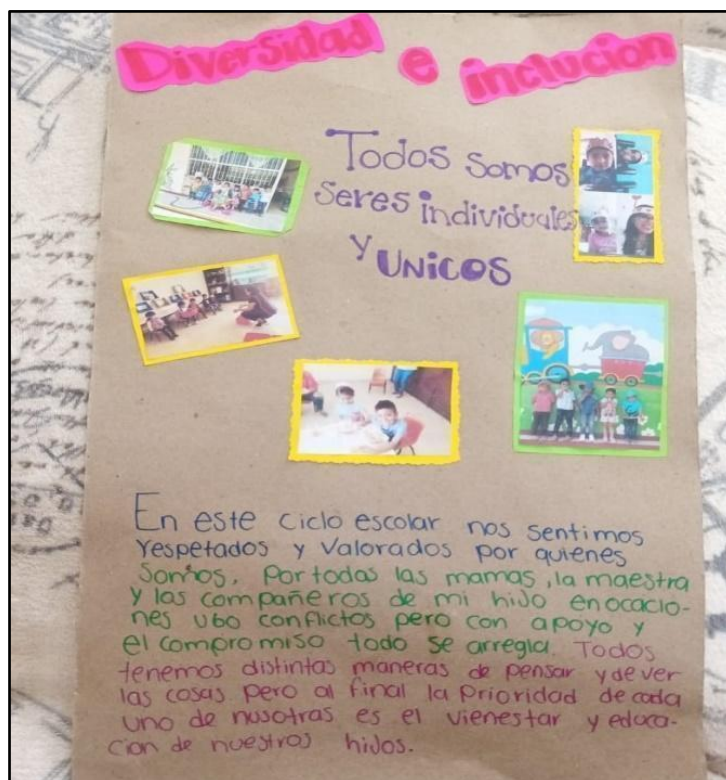 Diversidad e inclucion
Todos somos
seres individuales
y UNicos
En este ciclo escolar nos sentimos
respetados y valorados por quienes
Somos. Por todas las mamas, la maestra
y los compañeros de mi hijo en ocacio-
nes ubo conflictos pero con apoyo y
el compromiso todo se arregla. Todos
tenemos distintas maneras de pensar y de ver
las cosas pero al final la prioridad de cada
uno de nosotras es el vienestar y educa-
cion de nuestros hijos.